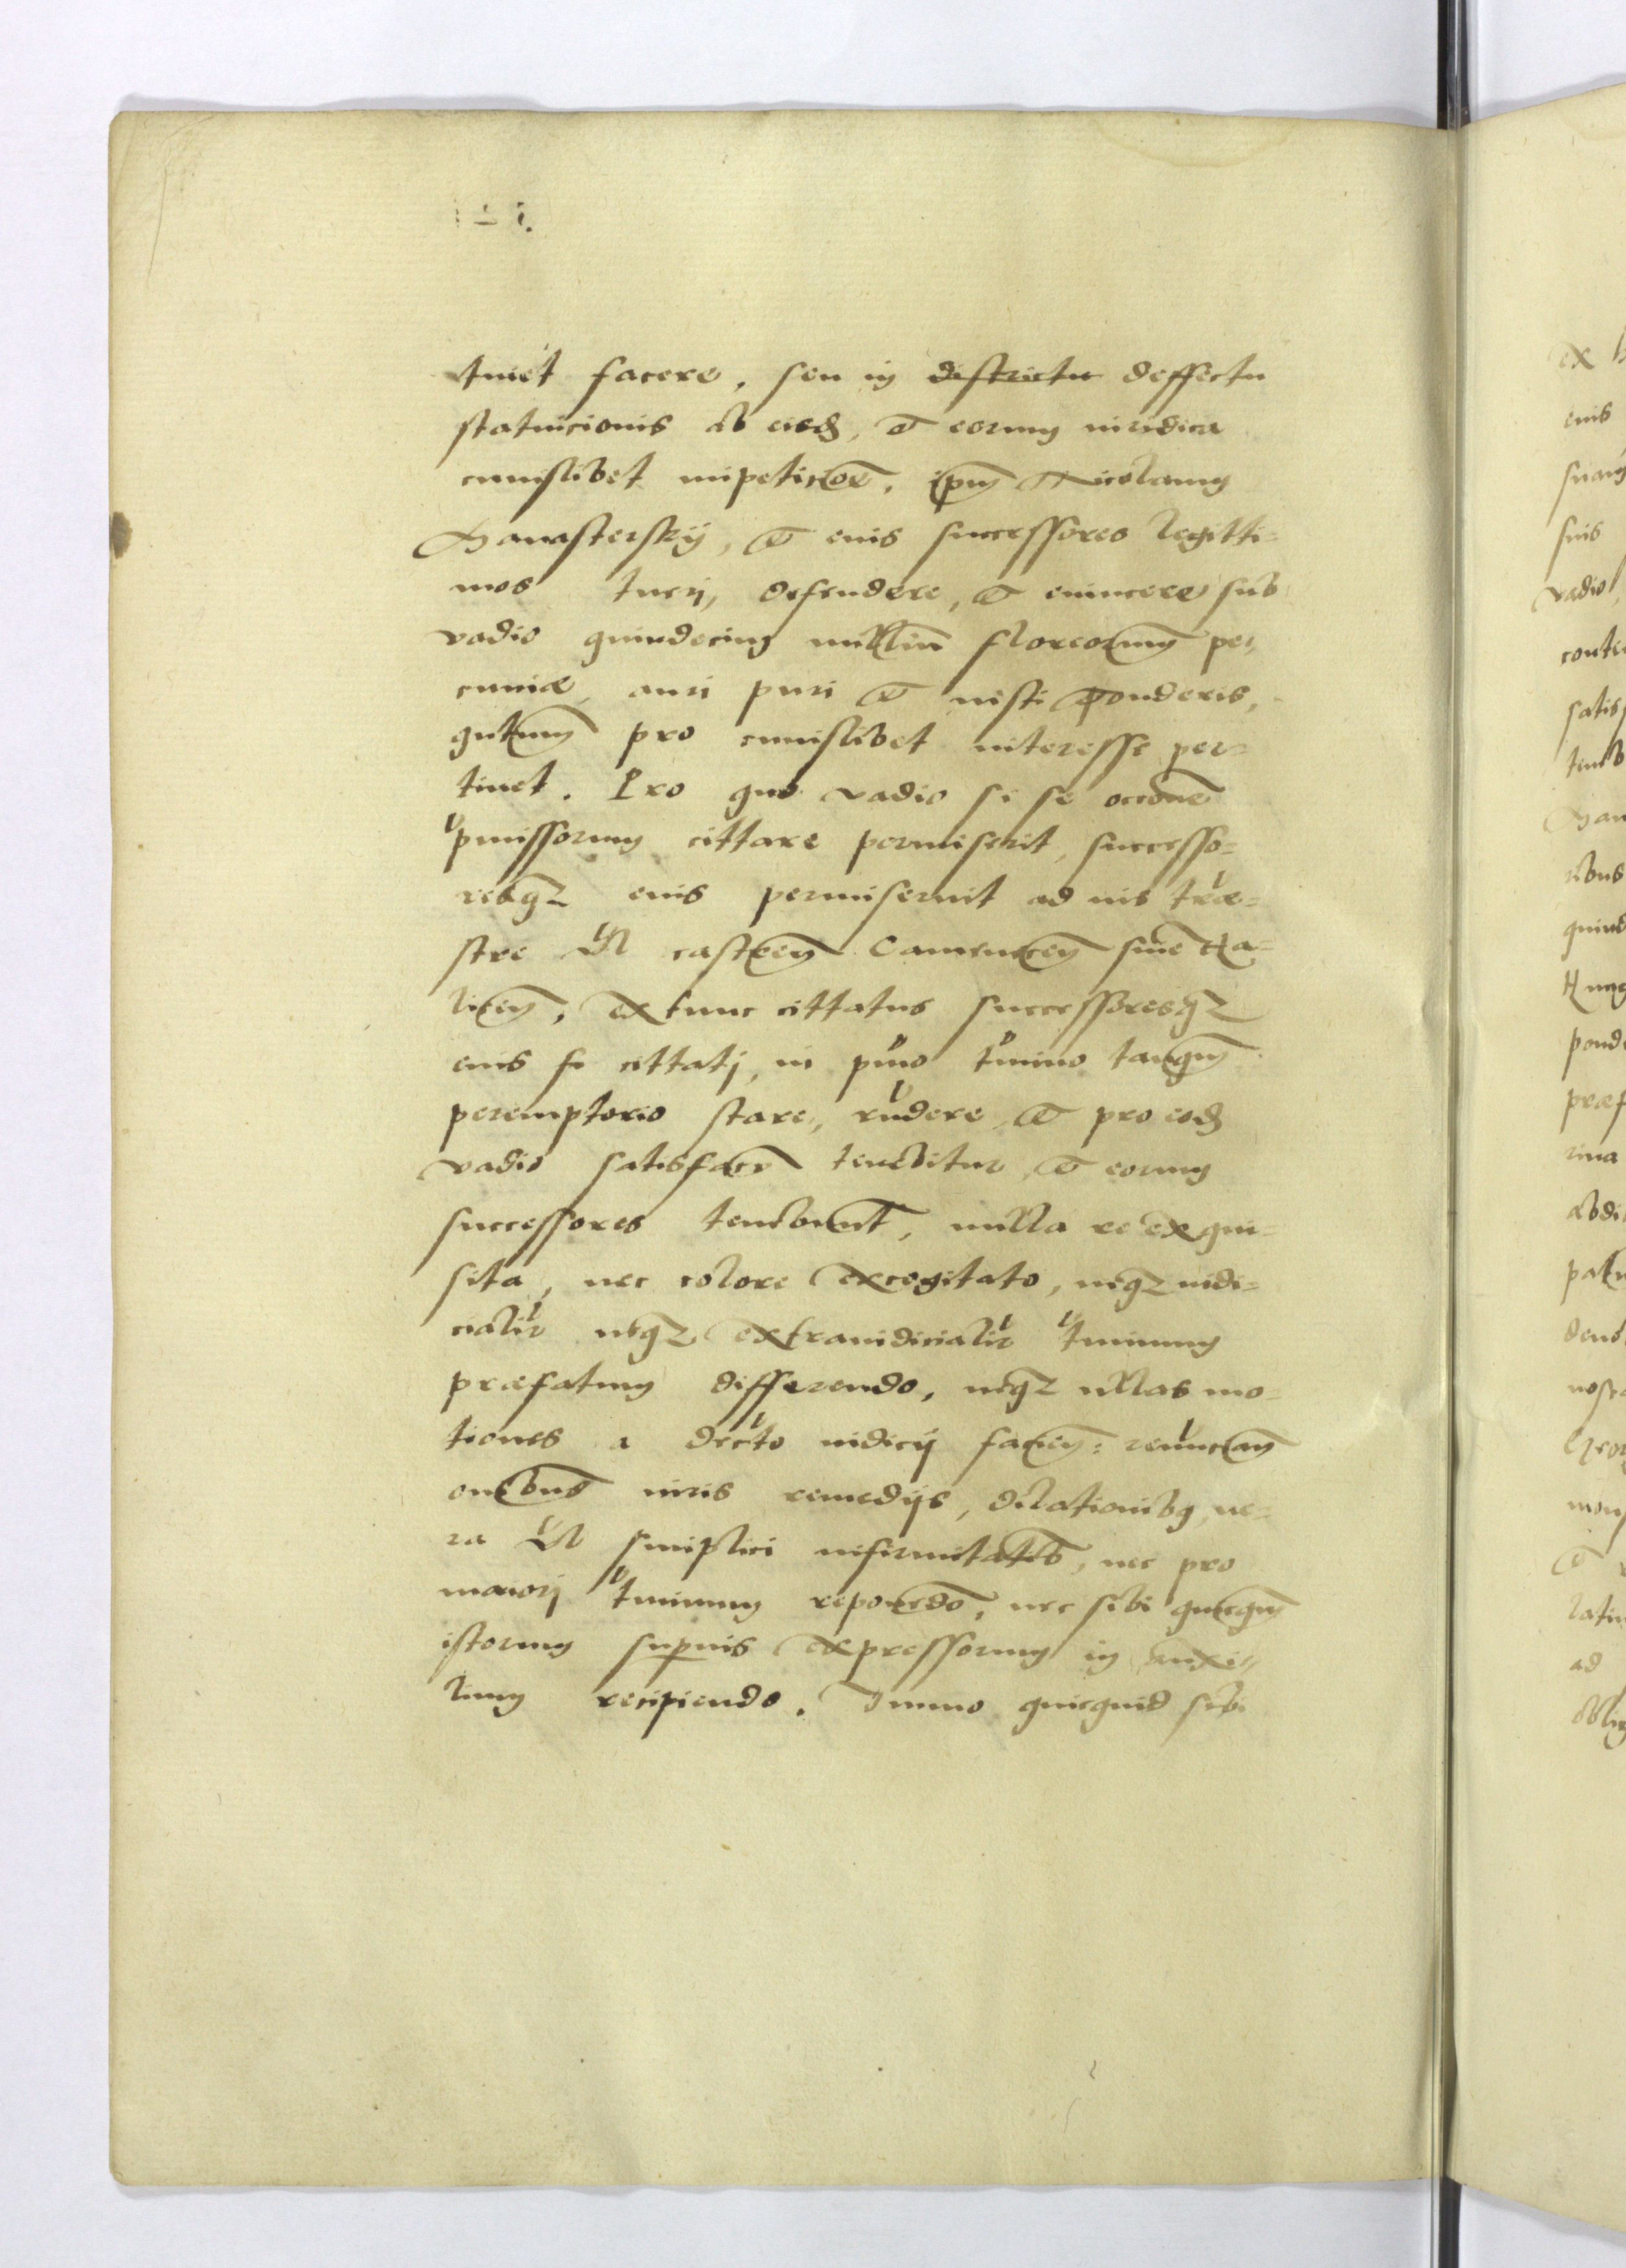 tuiet facere, seu in districtu deffectu
statuicionis ab eisdem, et eorum iuridica
cuiuslibet impeticõe, ipm Nicolaum
Hanasterskij, et eius successores legitti=
mos tueri, defendere, et euincere sub
vadio quindecim milliũ floreorum pe=
cuniæ, auri puri et iusti ponderis,
qutum pro cuiuslibet interesse per=
tinet. Pro quo vadio si se occõne
pmissorum cittare permiserit, successo=
resq3 eius permiserint ad ius træ=
stre ul castren Camenecen siue Ha=
licien, ex tunc cittatus successoresq3
eius si cittati, in pmo tmino tanqm
peremptorio stare, rndere et pro eodem
vadio satisfacẽ tenebitur et eorum
successores tenebunt, nulla re exqui=
sita, nec colore excogitato, neq3 iudi=
cialir neq3 extraiudicialir tminum
præfatum differendo, neq3 ullas mo=
tiones a decto iudicij facien: renuncian
onibus iuris remedijs, dilationibq, ue=
ra ul simplici infirmitatib, nec pro
maiori tminum reponendo, nec sibi quicqm
istorum supius expressorum in auxi=
lium recipiendo. Immo quicquid sibi